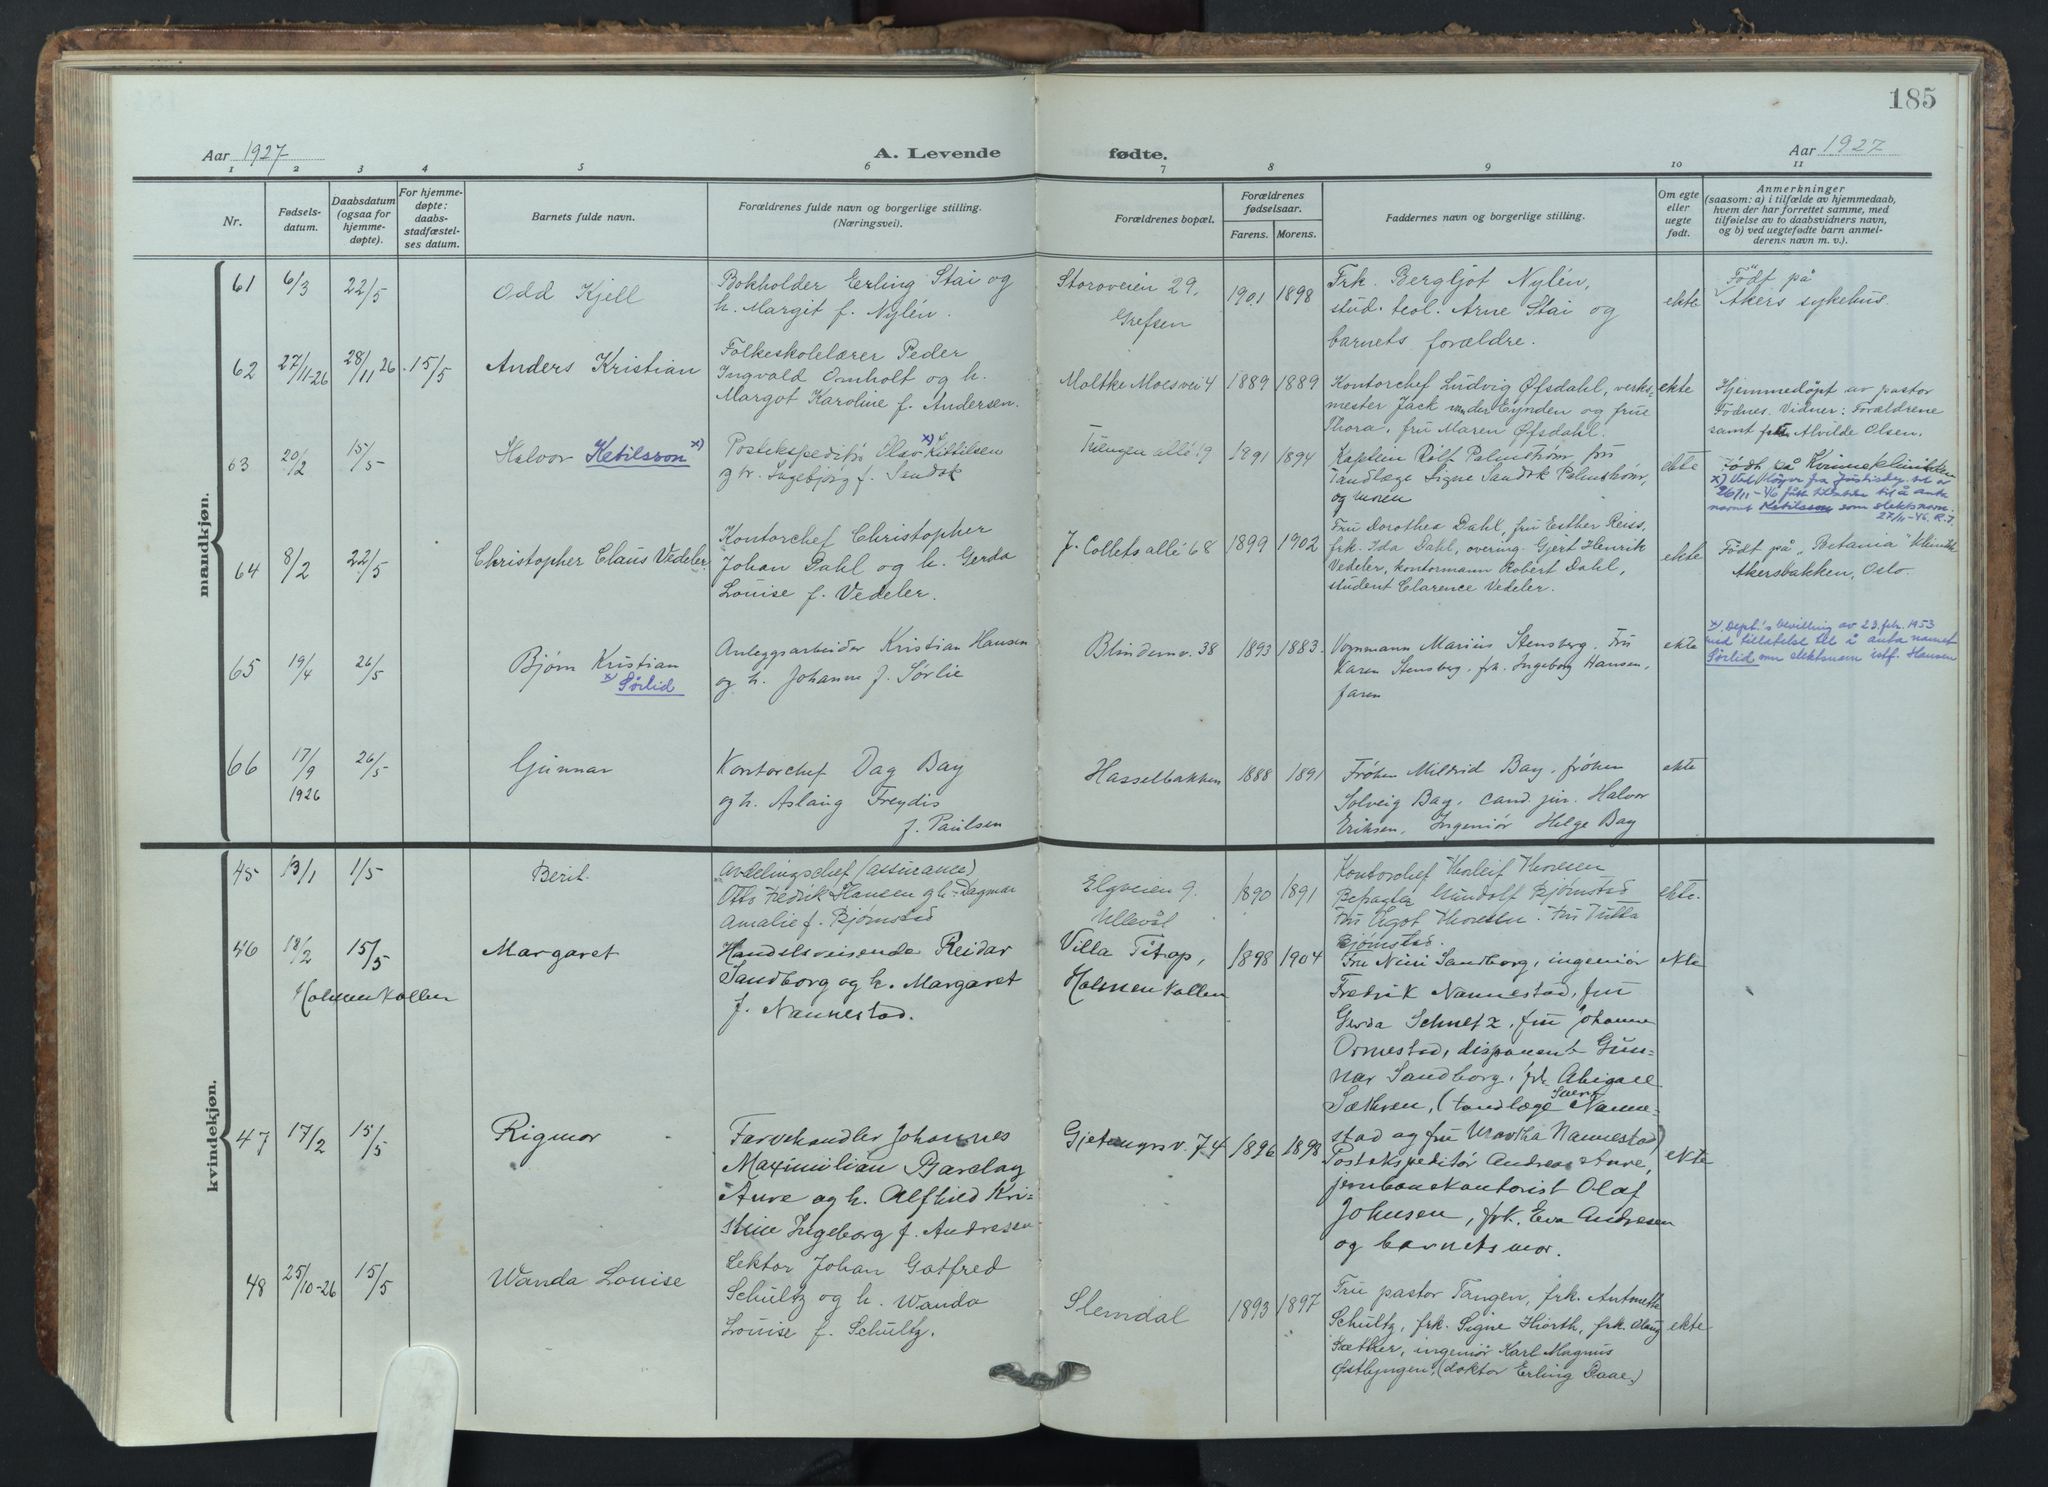 185
Aar 1927
A. Levende
fødte.
Aar 1927
1 2 3 4 5 6 7 8 9 10 11
Nr.
Fødsels-
datum.
Daabsdatum
(ogsaa for
hjemme-
døpte).
For hjemme-
døpte:
daabs-
stadfæstel-
ses datum.
Barnets fulde navn.
Forældrenes fulde navn og borgerlige stilling.
(Næringsvei).
Forældrenes bopæl.
Forældrenes
fødselsaar.
Farens. Morens.
Faddernes navn og borgerlige stilling.
Om egte
eller
uegte
født.
Anmerkninger
(saasom: a) i tilfælde av hjemmedaab,
hvem der har forrettet samme, med
tilføielse av to daabsvidners navn,
og b) ved uegtefødte barn anmel-
derens navn m. v.).
mandkjøn.
61 6/3 22/5
Odd Kjell
Bokholder Erling Stai og
h. Margit f. Nylén.
Storoveien 29,
Grefsen
1901 1898
Frk. Bergljot Nylén,
stud. teol. Arne Stai og
barnets forældre.
ekte
Født på
Akers sykehus.
62 27/11-26 28/11 26 15/5
Anders Kristian
Folkeskolelærer Peder
Ingvald Omholt og h.
Margot Karoline f. Andersen.
Moltke Moesvei 4
1889 1889
Kontorchef Ludvig Øfsdahl, verks-
mester Jack van der Eynden og frue
Thora, fru Maren Øfsdahl.
ekte
Hjemmedøpt av pastor
Fodnes. Vidner: Forældrene
samt Alvilde Olsen.
63 20/2 15/5
Halvor Ketilsson x)
Postekspeditør Olav x) Kittilsen
og h. Ingebjørg f. Sandok
Tuengen allé 19
1891 1894
Kaptein Rolf Palmstrøm, fru
Tandlæge Signe Sandok Palmstrøm,
og moren
ekte
Født på Kvinneklinikken
x) Ved
26/11-46 fått tillatelse til å anta
navnet Ketilsson som slektsnavn.
27/11-46. R.J.
64 8/2 22/5
Christopher Claus Vedeler.
Kontorchef Christopher
Johan Dahl og h. Gerda
Louise f. Vedeler.
J. Collets allé 68
1899 1902
Fru Dorothea Dahl, fru Esther Reiss,
frk. Ida Dahl, overing. Gjert Henrik
Vedeler, kontormann Robert Dahl,
student Clarence Vedeler.
ekte
Født på "Betania" klinik
Akersbakken, Oslo.
65 19/4 26/5
Bjørn Kristian
x) Sørlid
Anleggsarbeider Kristian Hansen
og h. Johanne f. Sørlie
Blindernv. 38
1893 1883.
Vognmann Marius Stensberg. Fru
Karen Stensberg, frk. Ingeborg Hansen,
faren
ekte
x) Dept.'s bevilling av 23. feb. 1953
med tillatelse til å anta navnet
Sørlid som slektsnavn istf. Hansen
66 17/9 1926 26/5
Gunnar
Kontorchef Dag Bay
og h. Aslaug Freydis
f. Paulsen
Hasselbakken
1888 1891
Frøken Mildrid Bay, frøken
Solveig Bay, cand. jur. Halvor
Eriksen, Ingeniør Helge Bay
ekte
kvindekjøn.
45 13/1 1/5
Berit.
Avdelingschef (assurance)
Otto Fredrik Hansen og h. Dagmar
Amalie f. Bjørnstad
Elgveien 9.
Ullevål
1890 1891
Kontorchef Thorleif Thoresen
Gundolf Bjørnstad
Fru Thoresen. Fru
Bjørnstad.
ekte.
46 18/2 15/5
Holmenkollen
Margaret
Handelsreisende Reidar
Sandborg og h. Margaret
f. Nannestad.
Villa Titop,
Holmenkollen
1898 1904
Fru Nini Sandborg, ingeniør
Fredrik Nannestad, fru
Gerda Schultz, fru Johanne
Ornestad, disponent Gun-
nar Sandborg, frk. Abigael
Sæthren, (tandlæge Nanne-
stad og fru Nannestad)
ekte
47 17/2 15/5
Rigmor
Farvehandler Johannes
Maximilian Barclay
Aure og h. Alfhild Kri-
stine Ingeborg f. Andresen
Gjetemyrsv. 74
1896 1898
Postekspeditør Andreas Aure,
jernbanekontorist Olaf
Johnsen, frk. Eva Andresen
og barnets mor.
ekte
48 25/10-26 15/5
Wanda Louise
Lektor Johan Gotfred
Schultz og h. Wanda
Louise f. Schultz.
Slemdal
1893 1897
Fru pastor Tangen, frk. Antonette
Schultz, frk. Signe Hiorth, frk. Olaug
Sæther, ingeniør Karl Magnus
Østbyngen, (doktor Erling Daae.)
ekte